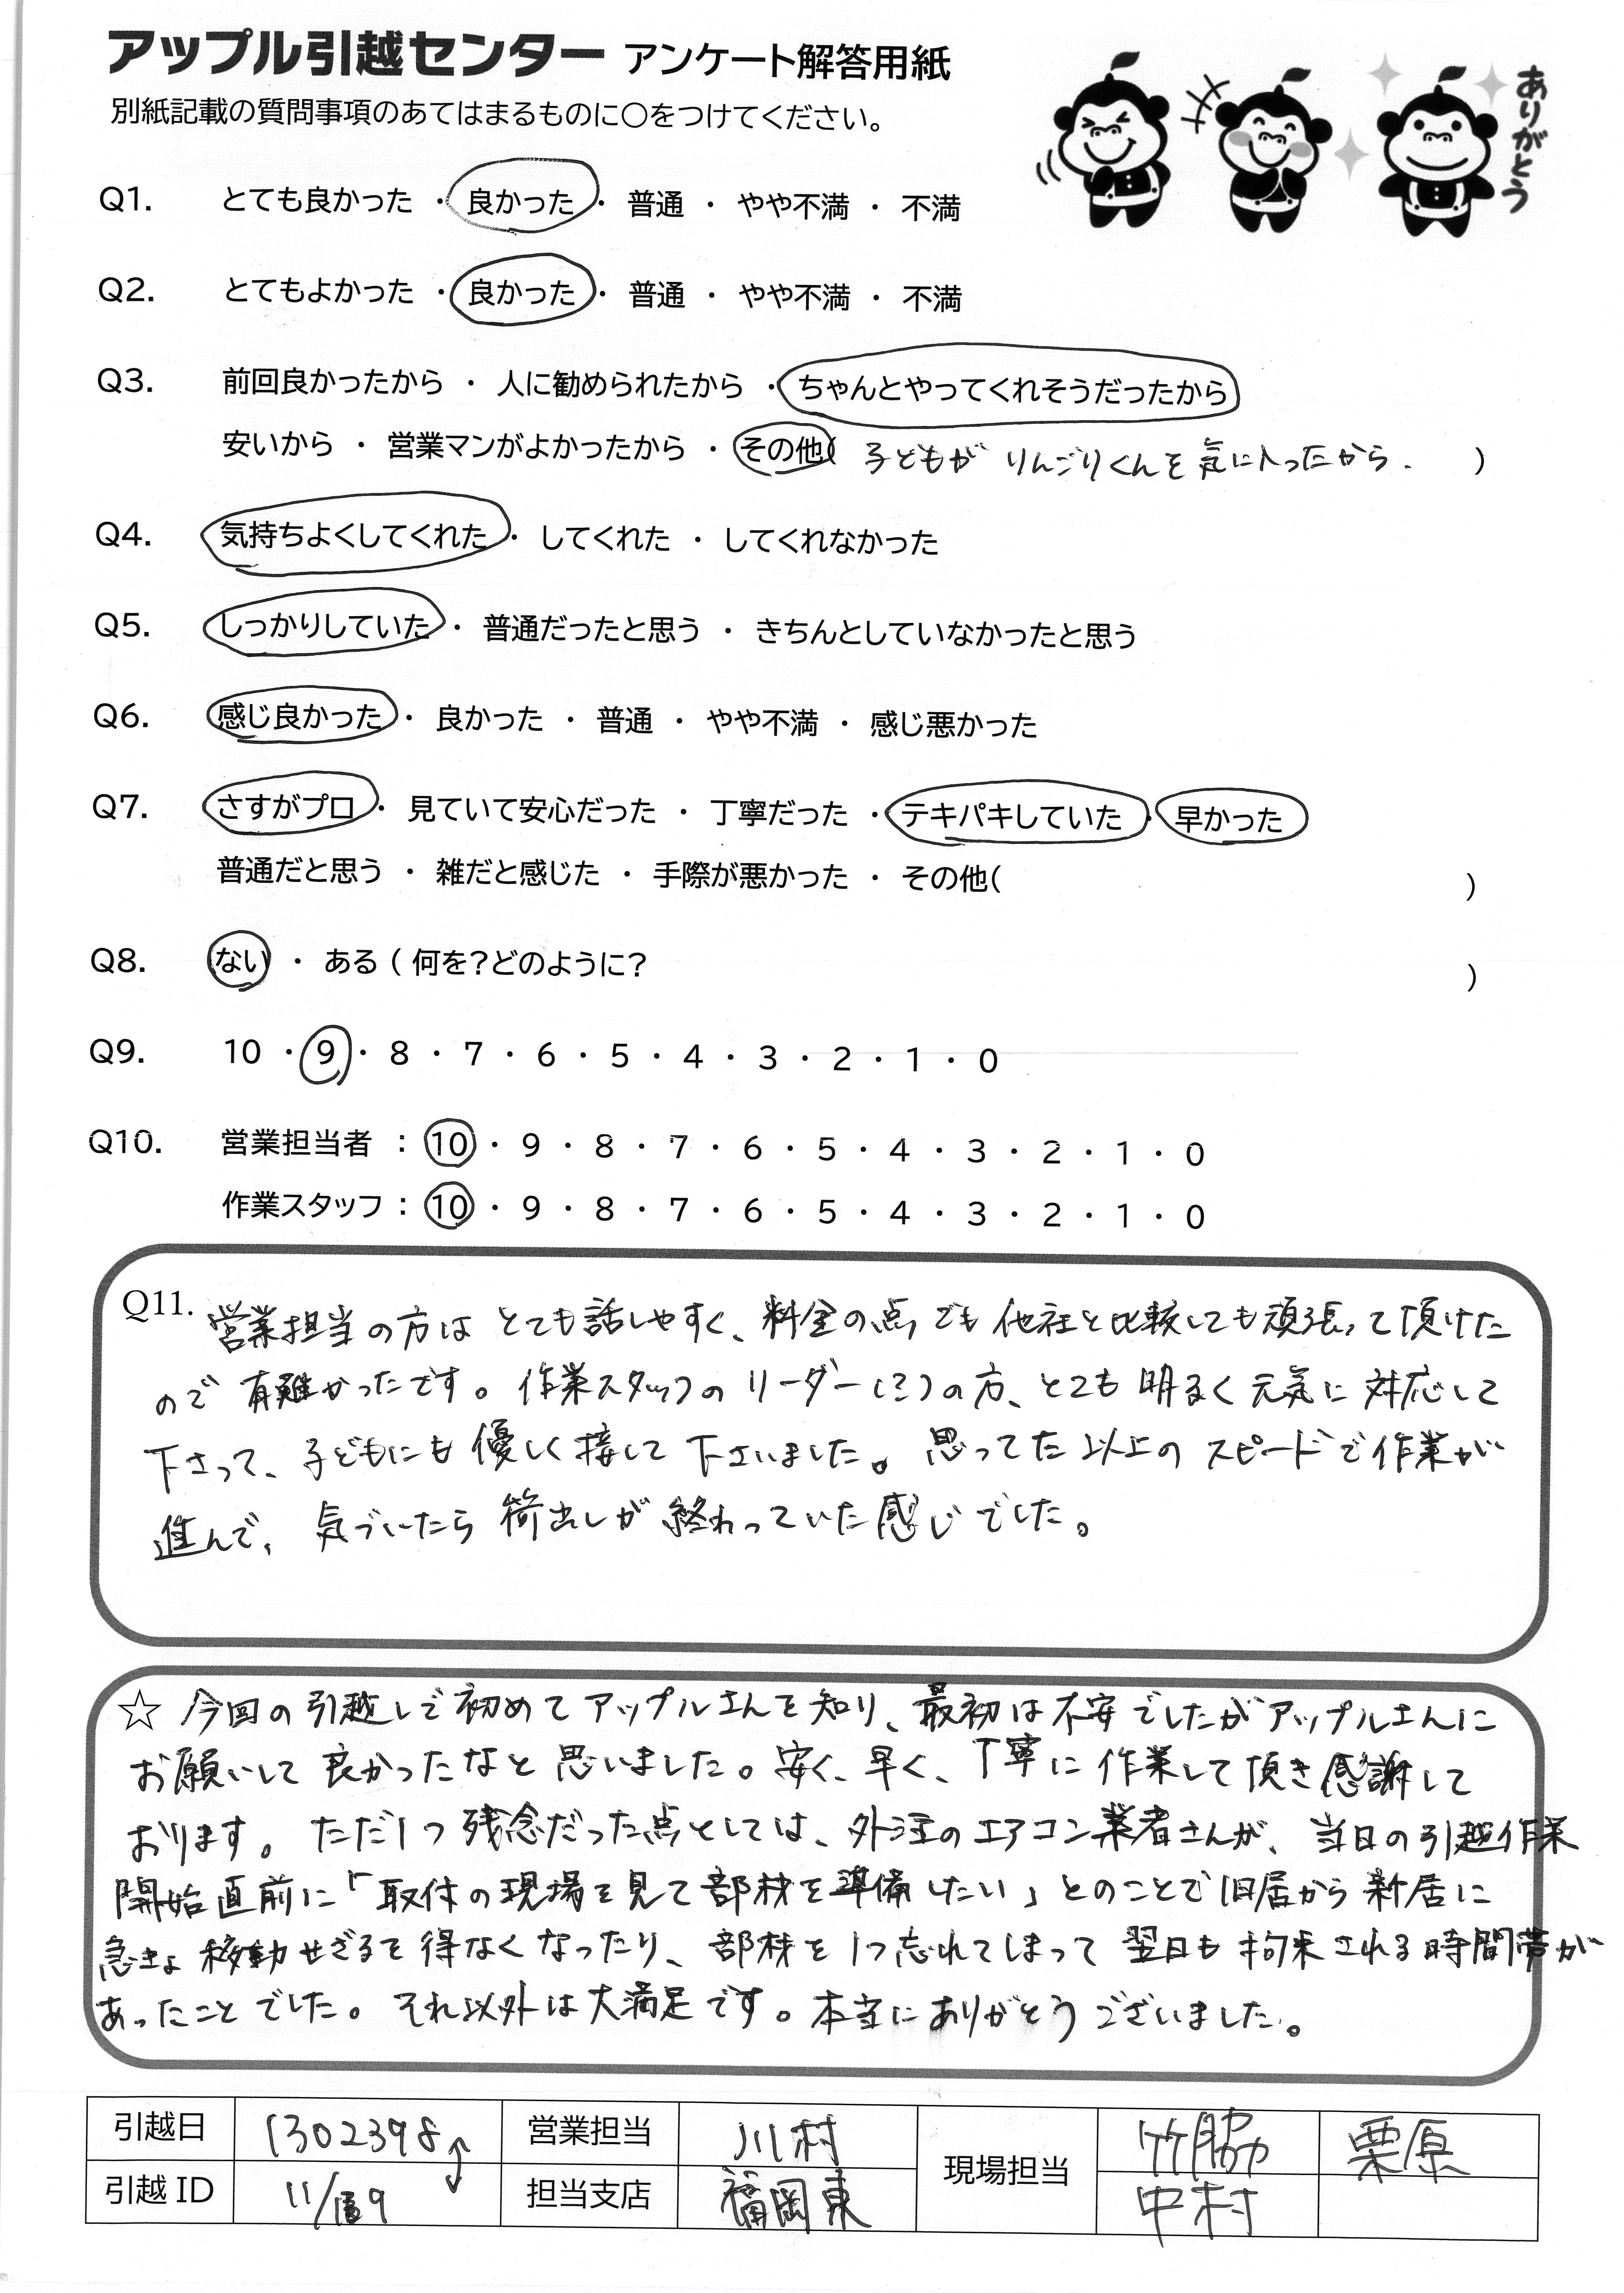 アップル引越センター アンケート解答用紙
別紙記載の質問事項のあてはまるものに〇をつけてください。
ありがとう
Q1. とても良かった ・ 良かった ・ 普通 ・ やや不満 ・ 不満
Q2. とてもよかった ・ 良かった ・ 普通 ・ やや不満 ・ 不満
Q3. 前回良かったから ・ 人に勧められたから ・ ちゃんとやってくれそうだったから
安いから ・ 営業マンがよかったから ・ その他( 子どもが りんごりくんを 気に入ったから. )
Q4. 気持ちよくしてくれた ・ してくれた ・ してくれなかった
Q5. しっかりしていた ・ 普通だったと思う ・ きちんとしていなかったと思う
Q6. 感じ良かった ・ 良かった ・ 普通 ・ やや不満 ・ 感じ悪かった
Q7. さすがプロ ・ 見ていて安心だった ・ 丁寧だった ・ テキパキしていた ・ 早かった
普通だと思う ・ 雑だと感じた ・ 手際が悪かった ・ その他( )
Q8. ない ・ ある ( 何を?どのように? )
Q9. 10 ・ 9 ・ 8 ・ 7 ・ 6 ・ 5 ・ 4 ・ 3 ・ 2 ・ 1 ・ 0
Q10. 営業担当者 : 10 ・ 9 ・ 8 ・ 7 ・ 6 ・ 5 ・ 4 ・ 3 ・ 2 ・ 1 ・ 0
作業スタッフ : 10 ・ 9 ・ 8 ・ 7 ・ 6 ・ 5 ・ 4 ・ 3 ・ 2 ・ 1 ・ 0
Q11. 営業担当の方は とても話しやすく、料金の点でも他社と比較しても頑張って頂けた
ので 有難かったです。作業スタッフの リーダー(?)の方、とても 明るく元気に 対応して
下さって、子どもにも 優しく接して 下さいました。思ってた以上の スピードで作業が
進んで、気づいたら 荷出しが 終わっていた感じでした。
☆ 今回の引越しで初めてアップルさんを知り、最初は不安でしたがアップルさんに
お願いして 良かったなと 思いました。安く、早く、丁寧に 作業して頂き感謝して
おります。ただ1つ 残念だった点としては、外注のエアコン業者さんが、当日の引越作業
開始直前に「取付の現場を見て部材を準備したい」とのことで旧居から新居に
急きょ 移動せざるを得なくなったり、部材を1つ忘れてしまって 翌日も拘束される時間帯が
あったことでした。それ以外は大満足です。本当にありがとうございました。
引越日 1302398 営業担当 川村 現場担当 竹脇 栗原
引越ID 11/9 担当支店 福岡東 中村